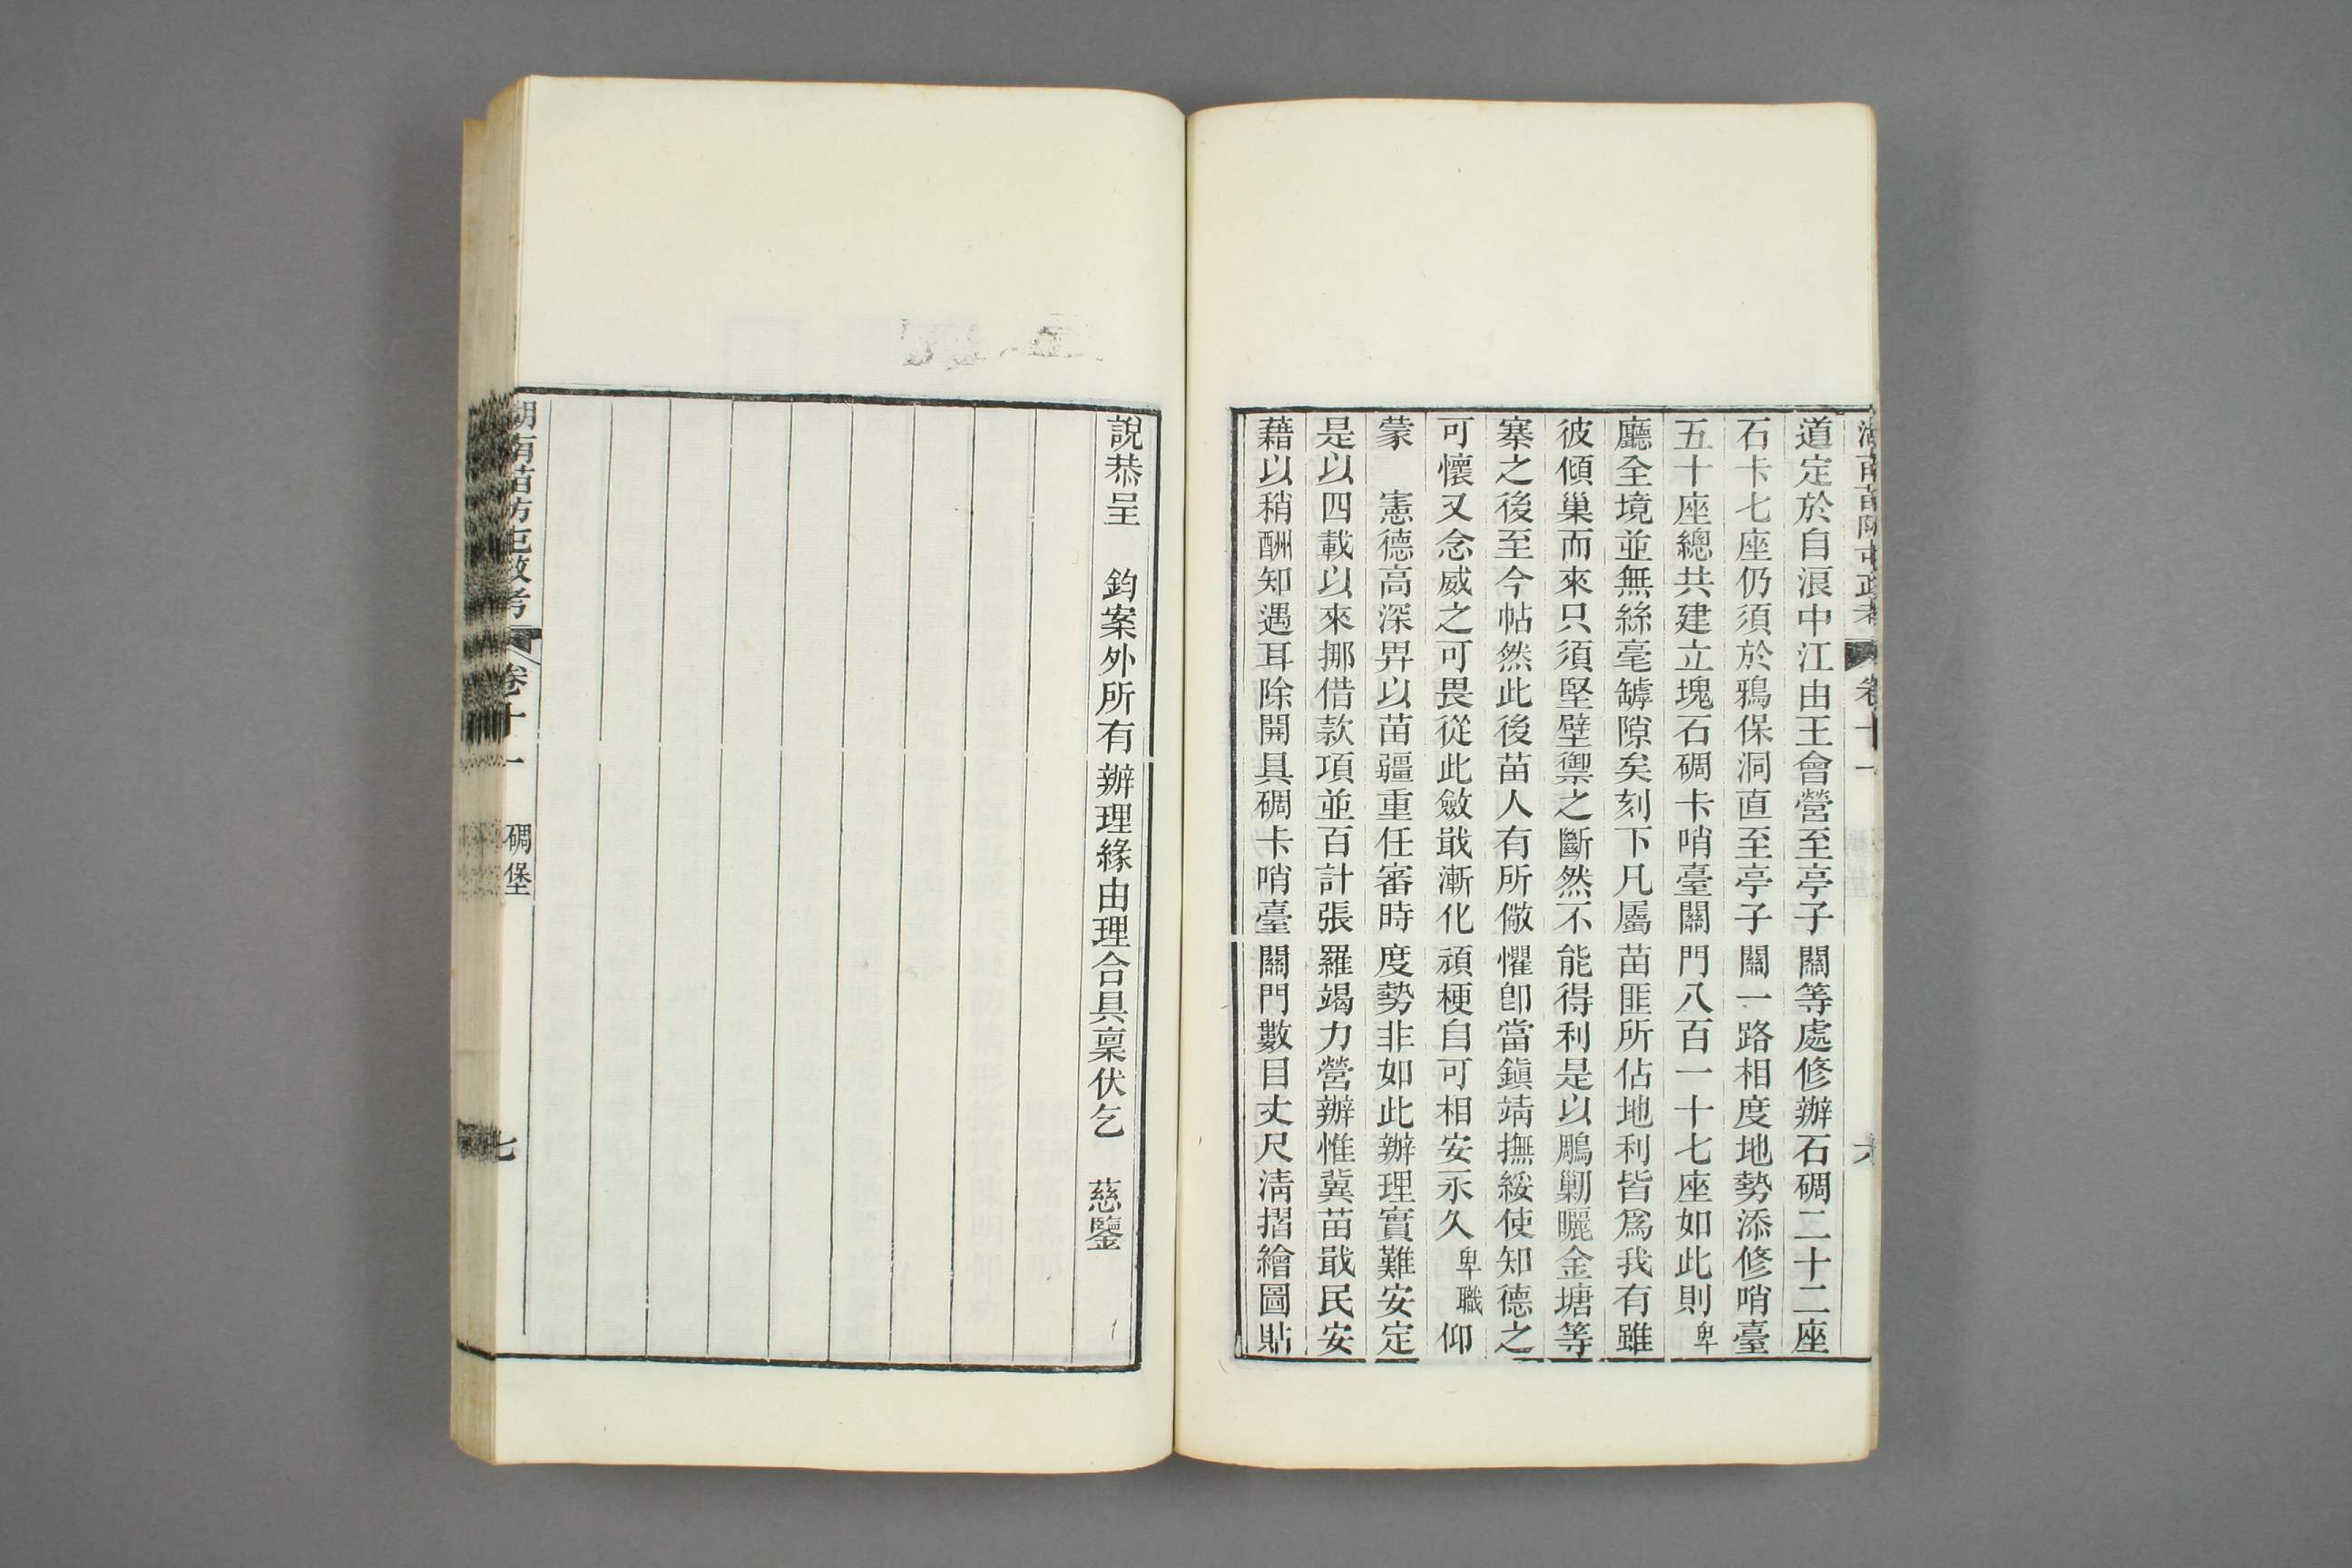 道定於自浪中江由王會營至亭子關等處修辦石碉二十二座
石卡七座仍須於鴉保洞直至亭子關一路相度地勢添修哨臺
五十座總共建立塊石碉卡哨臺關門八百一十七座如此則卑
廳全境並無絲毫罅隙矣刻下凡屬苗匪所佔地利皆爲我有雖
彼傾巢而來只須堅壁禦之斷然不能得利是以鵰剿曬金塘等
寨之後至今帖然此後苗人有所儆懼卽當鎮靖撫綏使知德之
可懷又念威之可畏從此斂戢漸化頑梗自可相安永久卑職仰
蒙　憲德高深畀以苗疆重任審時度勢非如此辦理實難安定
是以四載以來挪借款項並百計張羅竭力營辦惟冀苗戢民安
藉以稍酬知遇耳除開具碉卡哨臺關門數目丈尺淸摺繪圖貼
說恭呈　鈞案外所有辦理緣由理合具稟伏乞　慈鑒
湖南苗防屯政考　卷十一　碉堡　七